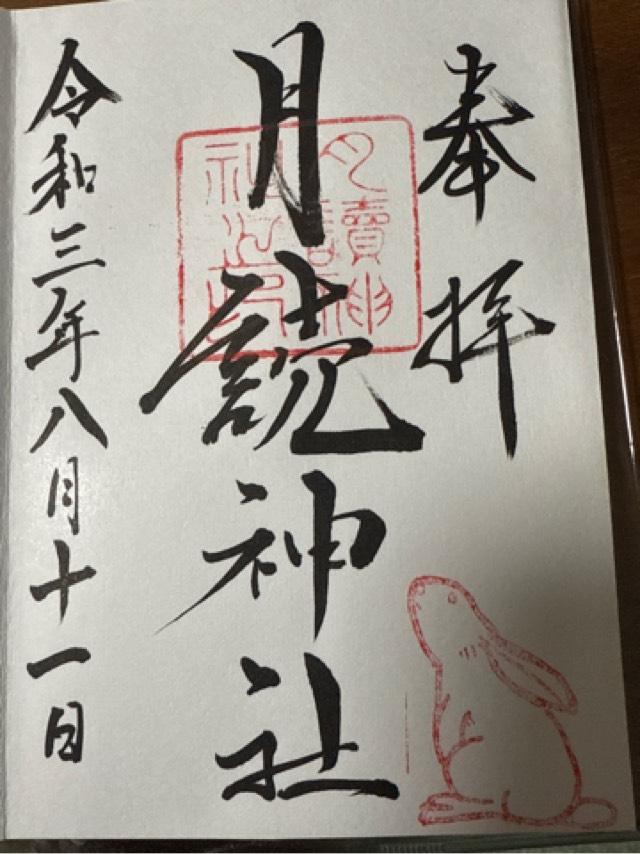 奉拝
月読神社
月讀神社之印
令和三年八月十一日